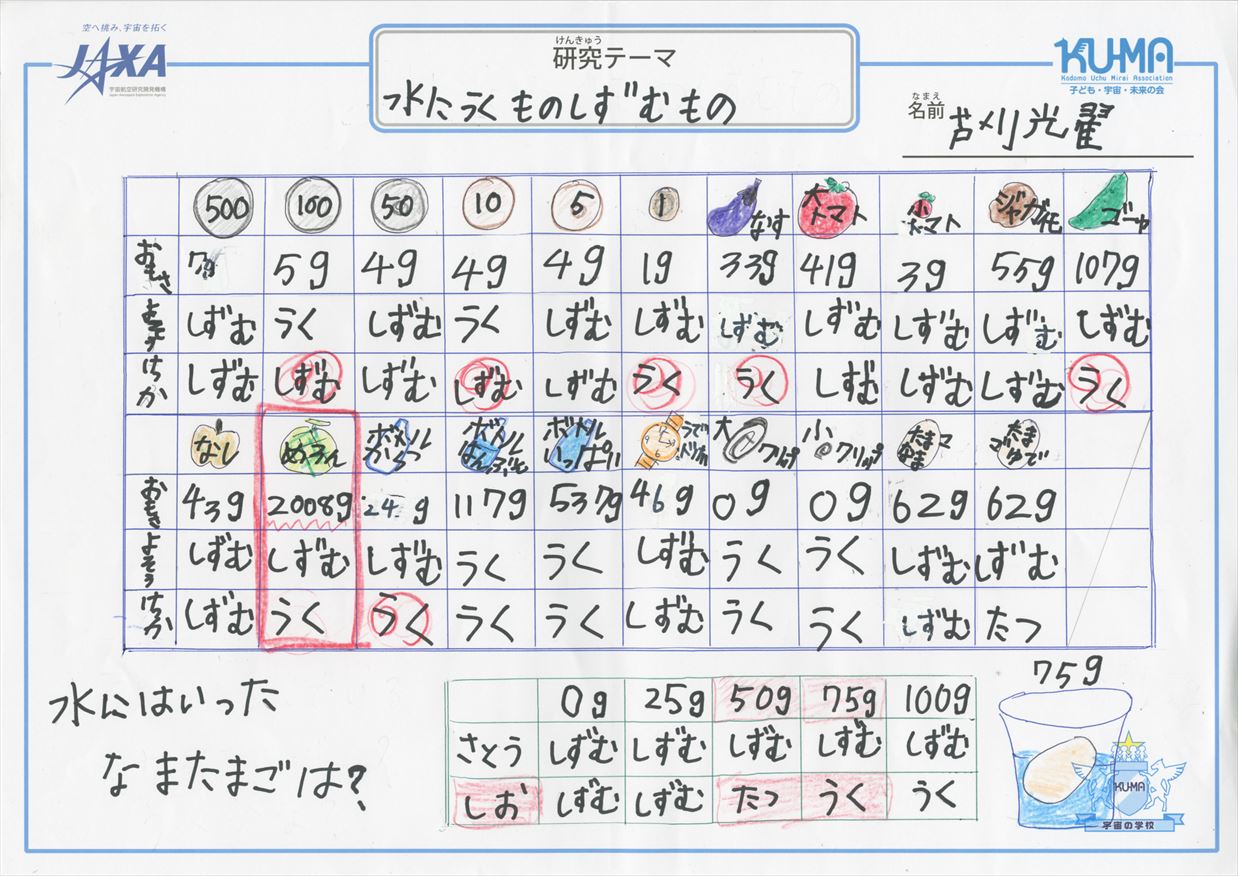 空へ挑み、宇宙を拓く
JAXA
宇宙航空研究開発機構
Japan Aerospace Exploration Agency
けんきゅう
研究テーマ
水にうくものしずむもの
KU-MA
Kodomo Uchu Mirai Association
子ども・宇宙・未来の会
なまえ
名前 芦刈光曜
500 100 50 10 5 1 なす 大トマト 小トマト ジャガイモ ゴーヤ
おもさ 7g 5g 4g 4g 4g 1g 33g 41g 3g 55g 107g
よそう しずむ うく しずむ うく しずむ しずむ しずむ しずむ しずむ しずむ しずむ
けっか しずむ しずむ しずむ しずむ しずむ うく うく しずむ しずむ しずむ うく
なし めろん ボトルからっぽ ボトルはんぶん ボトルいっぱい うでドケイ 大クリップ 小クリップ たまごなま たまごゆで
おもさ 43g 2008g 24g 117g 537g 46g 0g 0g 62g 62g
よそう しずむ しずむ しずむ うく うく しずむ うく うく しずむ しずむ
けっか しずむ うく うく うく うく しずむ うく うく しずむ たつ
水にはいった
なまたまごは?
0g 25g 50g 75g 100g
さとう しずむ しずむ しずむ しずむ しずむ
しお しずむ しずむ たつ うく うく
75g
KU-MA
宇宙の学校